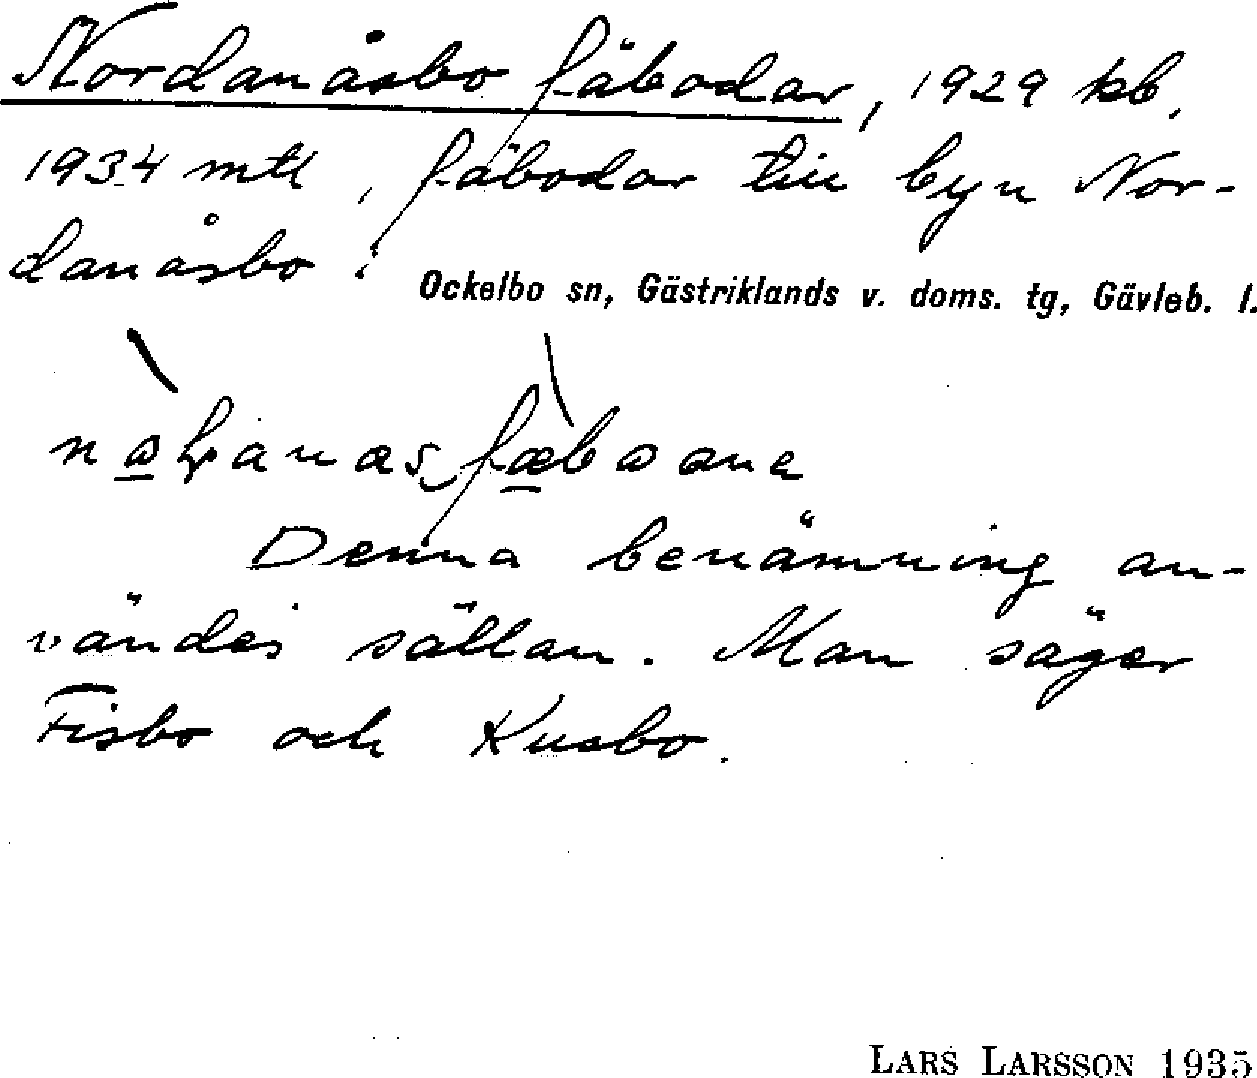 Nordanåsbo fäbodar, 1929 kb,
1934 mtl, fäbodar till byn Nor-
danåsbo i
Ockelbo sn, Gästriklands v. doms. tg, Gävleb. l.
Denna benämning an-
vändes sällan. Man säger
Fisbo och Kusbo.
LARS LARSSON 1935